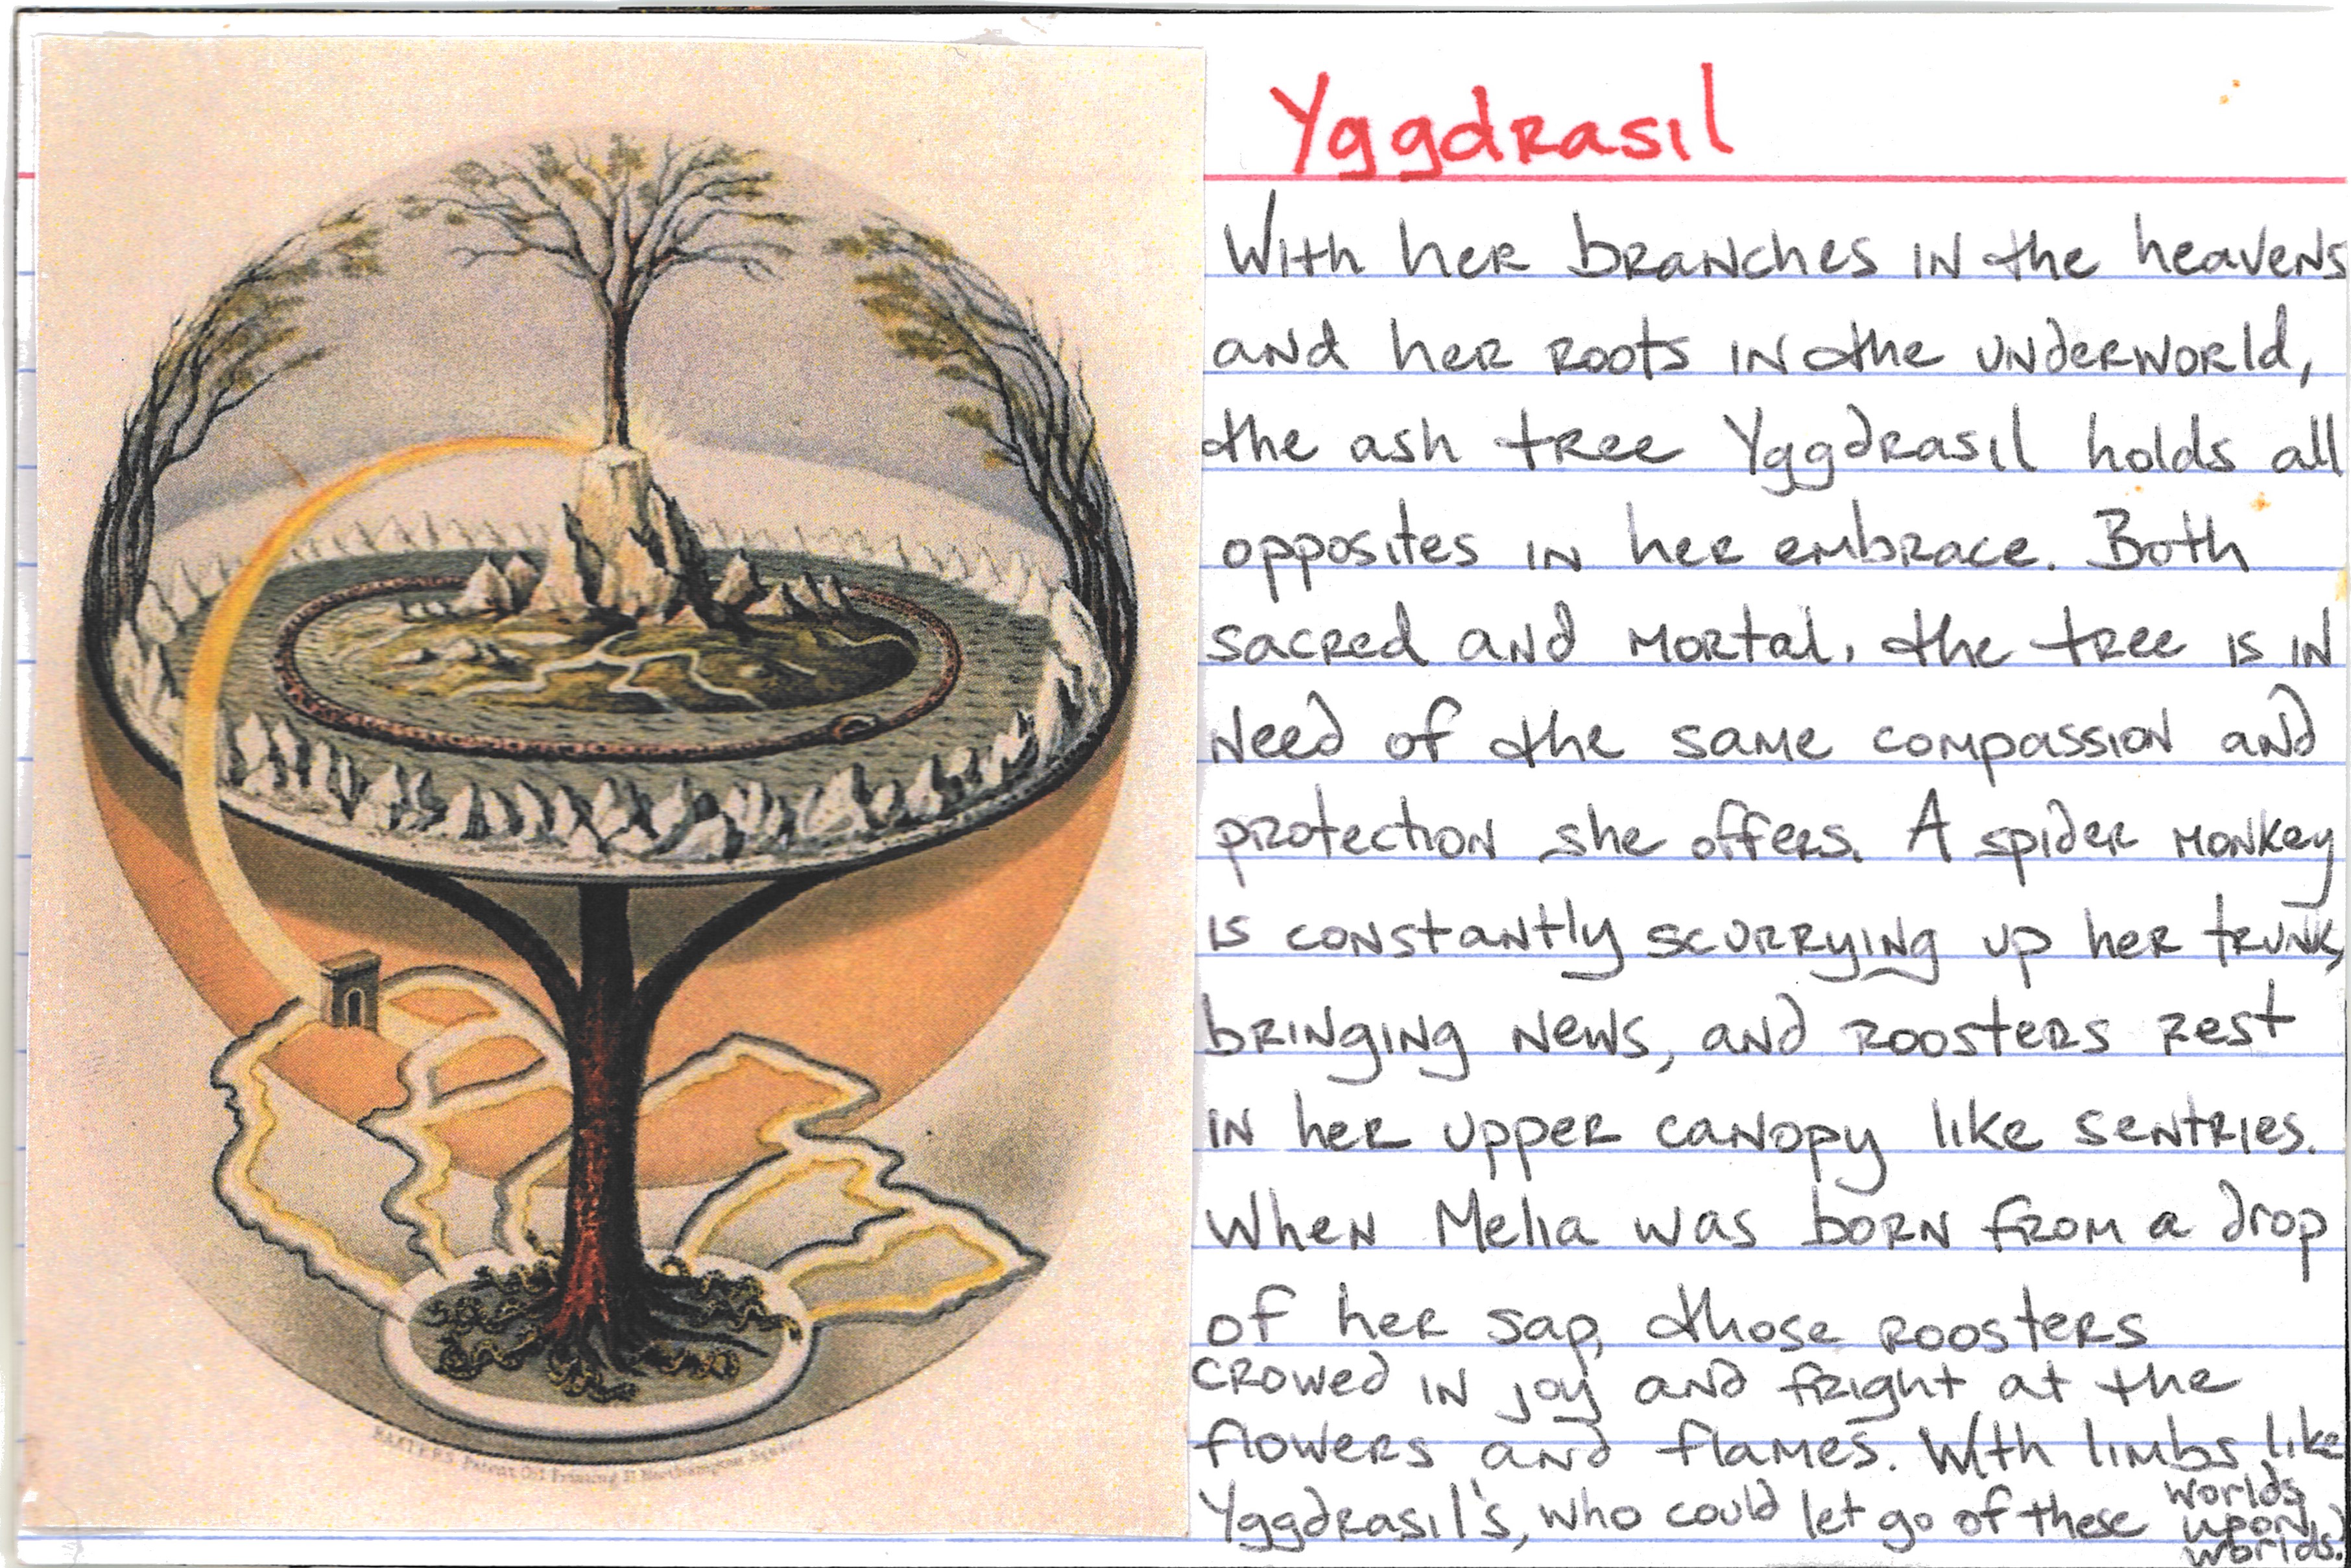 Yggdrasil
With her branches in the heavens
and her roots in the underworld,
the ash tree Yggdrasil holds all
opposites in her embrace. Both
sacred and mortal, the tree is in
need of the same compassion and
protection she offers. A spider monkey
is constantly scurrying up her trunk,
bringing news, and roosters rest
in her upper canopy like sentries.
When Melia was born from a drop
of her sap, those roosters
crowed in joy and fright at the
flowers and flames. With limbs like
Yggdrasil's, who could let go of these worlds
upon
worlds.
BAXTER'S Patent Oil Printing 11 Northampton Square